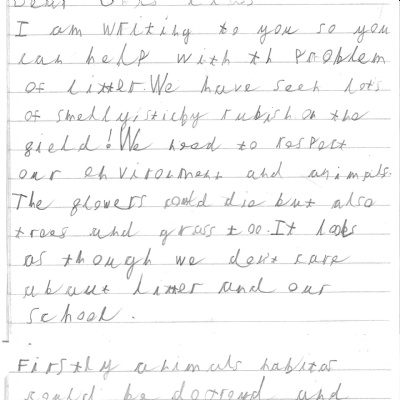 I am writing to you so you
can help with th problem
of litter. We have seen lots
of smelly, rubish on the
gield! We need to respect
our environment and
The glowers could die but also
trees and grass too. It looks
as though we don't care
abaut litter and our
school.
Firstly animals habitas
be and